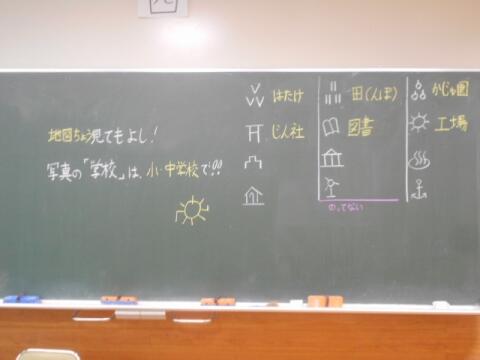 地図ちょう見てもよし!
写真の「学校」は、小・中学校で!!
はたけ
じん社
田(んぼ)
図書
のってない
かじゅ園
工場